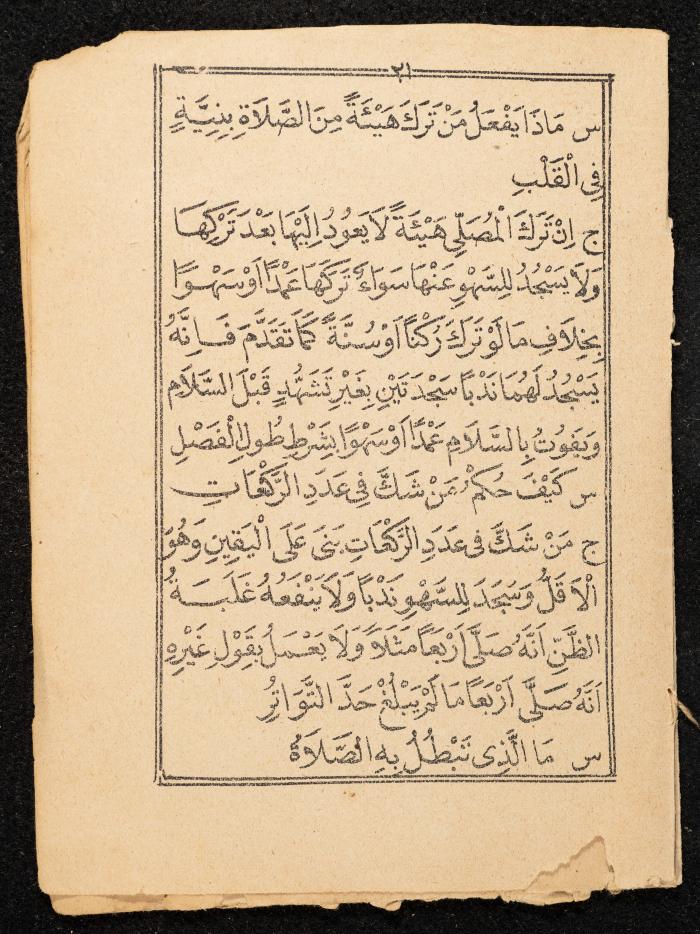 ٢١
س مَاذَا يَفْعَلُ مَنْ تَرَكَ هَيْئَةً مِنَ الصَّلَاةِ بِنِيَّةٍ
فِي الْقَلْبِ
ج اِنْ تَرَكَ الْمُصَلِّى هَيْئَةً لَا يَعُودُ اِلَيْهَا بَعْدَ تَرْكِهَا
وَلَا يَسْجُدُ لِلسَّهْوِ عَنْهَا سَوَاءٌ تَرَكَهَا عَمْدًا اَوْ سَهْوًا
بِخِلَافِ مَا لَوْ تَرَكَ رُكْنًا اَوْ سُنَّةً كَمَا تَقَدَّمَ فَاِنَّهُ
يَسْجُدُ لَهُمَا نَدْبًا سَجْدَتَيْنِ بِغَيْرِ تَشَهُّدٍ قَبْلَ السَّلَامِ
وَيَفُوتُ بِالسَّلَامِ عَمْدًا اَوْ سَهْوًا بِشَرْطِ طُولِ الْفَصْلِ
س كَيْفَ حُكْمُ مَنْ شَكَّ فِى عَدَدِ الرَّكْعَاتِ
ج مَنْ شَكَّ فِى عَدَدِ الرَّكْعَاتِ بَنَى عَلَى الْيَقِينِ وَهُوَ
الْاَقَلُّ وَسَجَدَ لِلسَّهْوِ نَدْبًا وَلَا يَنْفَعُهُ غَلَبَةُ
الظَّنِّ اَنَّهُ صَلَّى اَرْبَعًا مَثَلًا وَلَا يَعْمَلُ بِقَوْلِ غَيْرِهِ
اَنَّهُ صَلَّى اَرْبَعًا مَا لَمْ يَبْلُغْ حَدَّ التَّوَاتُرِ
س مَا الَّذِى تَبْطُلُ بِهِ الصَّلَاةُ